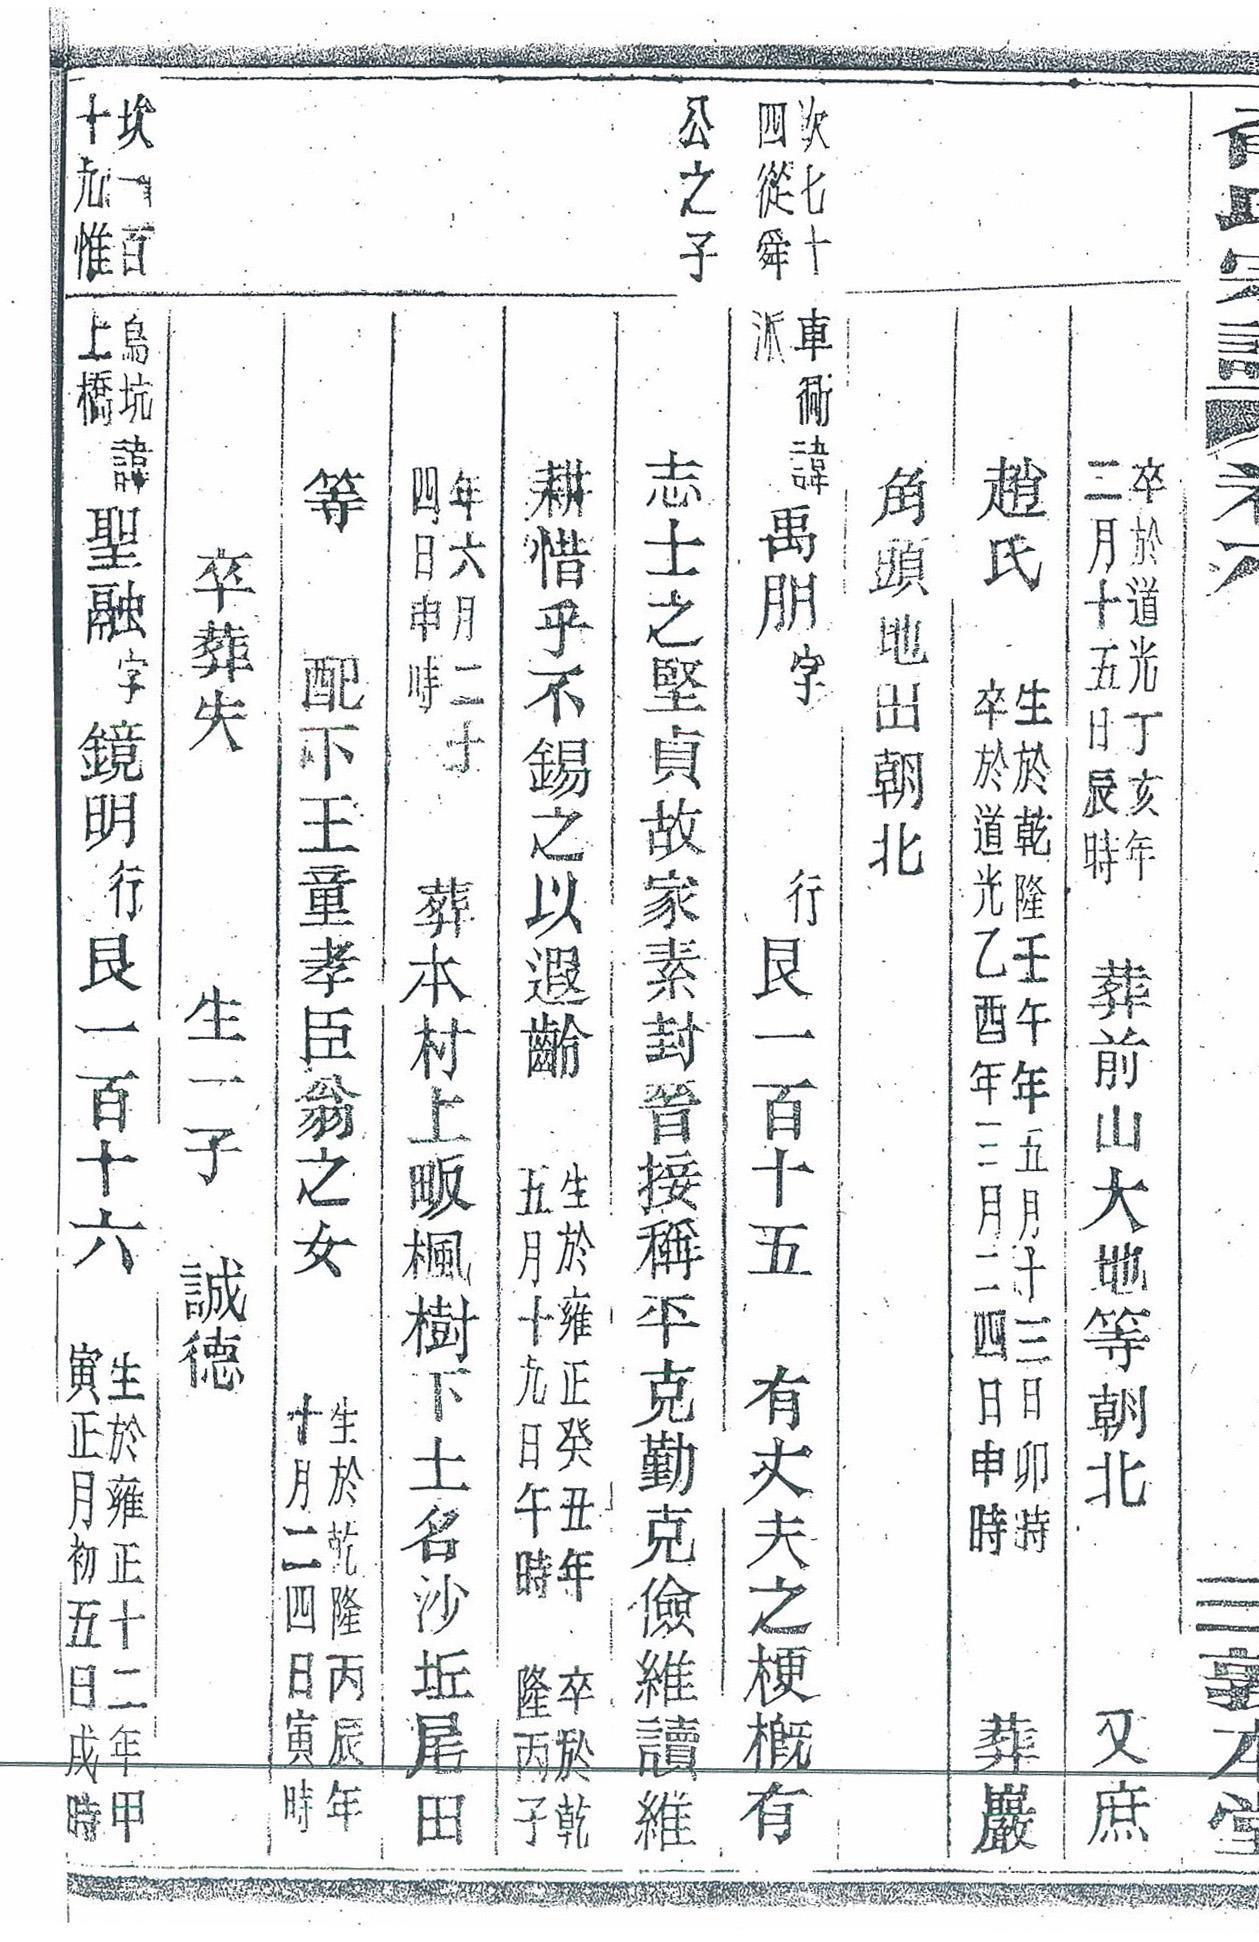 卒於道光丁亥年
二月十五日辰時
葬前山大地等朝北　又庶
趙氏
生於乾隆壬午年五月十三日卯時
卒於道光乙酉年三月二四日申時
葬巖
角頭地出朝北
次七十
四從舜
車衕諱
派
禹朋字　行艮一百十五　有丈夫之梗概有
公之子
志士之堅貞故家素封晉接稱平克勤克儉維讀維
耕惜乎不錫之以遐齡
生於雍正癸丑年
五月十九日午時
卒於乾
隆丙子
年六月二十
四日申時
葬本村上畈楓樹下土名沙坵尾田
等　配下王童孝臣翁之女
生於乾隆丙辰年
十月二四日寅時
卒葬失　生一子　誠德
埃一百
十九惟
烏坑諱
上橋
聖融字鏡明行艮一百十六
生於雍正十二年甲
寅正月初五日戌時